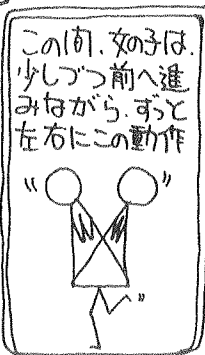 この間、女の子は、
少しづつ前へ進
みながら、ずっと
左右にこの動作